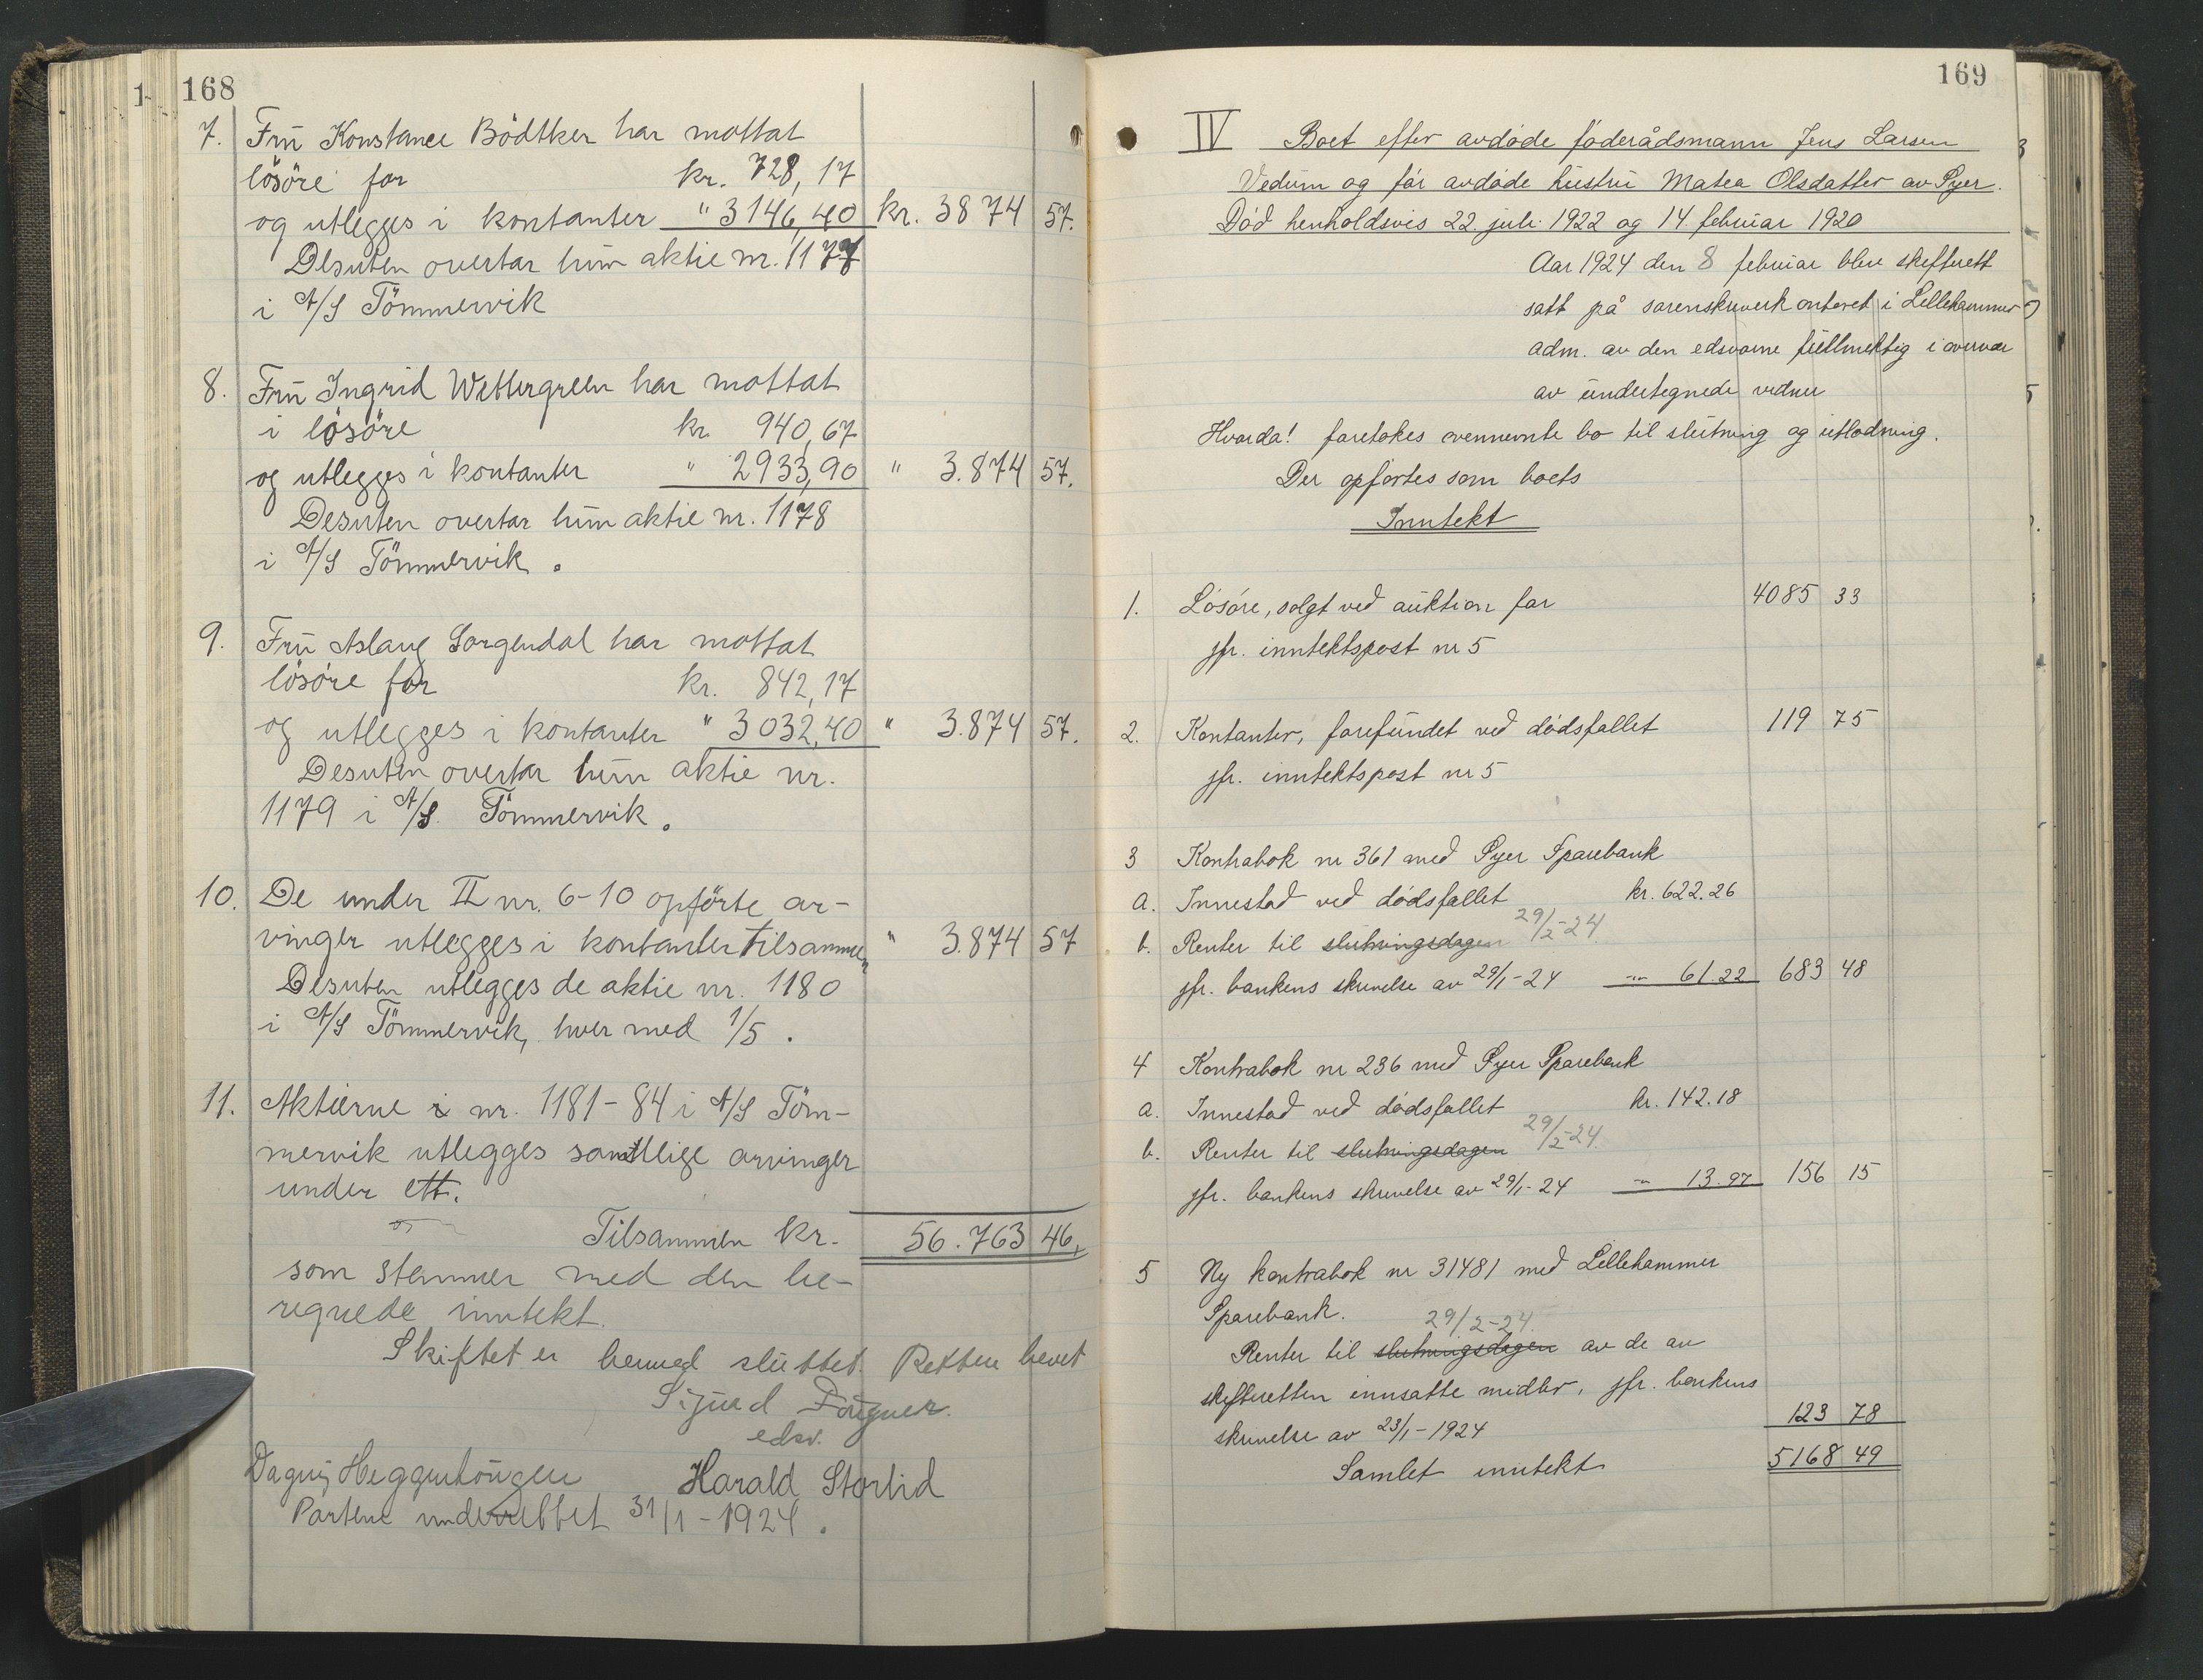 168
7. Frū Konstance Bödtker har mottat
lösöre for kr. 728,17
og utlegges i kontanter " 3146,40 kr. 3874 57.
Desuten overtar hūn aktie nr. 1177
i A/S Tömmervik
8. Frū Ingrid Wettergreen har mottat
i lösöre kr. 940,67
og utlegges i kontanter " 2933,90 " 3.874 57.
Desuten overtar hūn aktie nr. 1178
i A/S Tömmervik.
9. Frū Aslaug Sorgendal har mottat
lösöre for kr. 842,17
og utlegges i kontanter " 3032,40 " 3.874 57.
Desuten overtar hūn aktie nr.
1179 i A/S Tömmervik.
10. De under II nr. 6-10 opförte ar-
vinger utlegges i kontanter tilsammen " 3.874 57
Desuten utlegges de aktie nr. 1180
i A/S Tömmervik, hver med 1/5.
11. Aktierne i nr. 1181-84 i A/S Töm-
mervik utlegges samtlige arvinger
under ett.
Tilsammen kr. 56.763 46,
som stemmer med den be-
regnede inntekt.
Skiftet er hermed slūttet. Retten hevet
Sigurd Fougner.
edsv.
Dagny Heggenhougen Harald Storlid
Partene underrettet 31/1-1924.
169
IV Boet efter avdøde føderådsmann Jens Larsen
Vedūm og før avdøde hūstrū Matea Olsdatter av Øyer.
Død henholdsvis 22. juli 1922 og 14. februar 1920
Aar 1924 den 8 februar blev skifterett
satt på sorenskriverkontoret i Lillehammer
adm. av den edsvorne fūllmektig i overvær
av ūndertegnede vidner
Hvorda! foretokes ovennevnte bo til slūtning og ūtlodning.
Der opførtes som boets
Inntekt
1. Løsøre, solgt ved aūktion for 4085 33
jfr. inntektspost nr 5
2. Kontanter, forefūndet ved dødsfallet 119 75
jfr. inntektspost nr 5
3 Kontrabok nr 361 med Øyer Sparebank
a. Innestod ved dødsfallet kr. 622.26
29/2-24.
b. Renter til slūtningsdagen
jfr. bankens skrivelse av 29/1-24 -"- 61.22 683 48
4 Kontrabok nr 236 med Øyer Sparebank
a. Innestod ved dødsfallet kr. 142.18
29/2-24.
b. Renter til slūtningsdagen
jfr. bankens skrivelse av 29/1-24 -"- 13.97 156 15
5 Ny kontrabok nr 31481 med Lillehammer
Sparebank. 29/2-24.
Renter til slūtningsdagen av de av
skifteretten innsatte midler, jfr. bankens
skrivelse av 23/1-1924 123 78
Samlet inntekt 5168 49